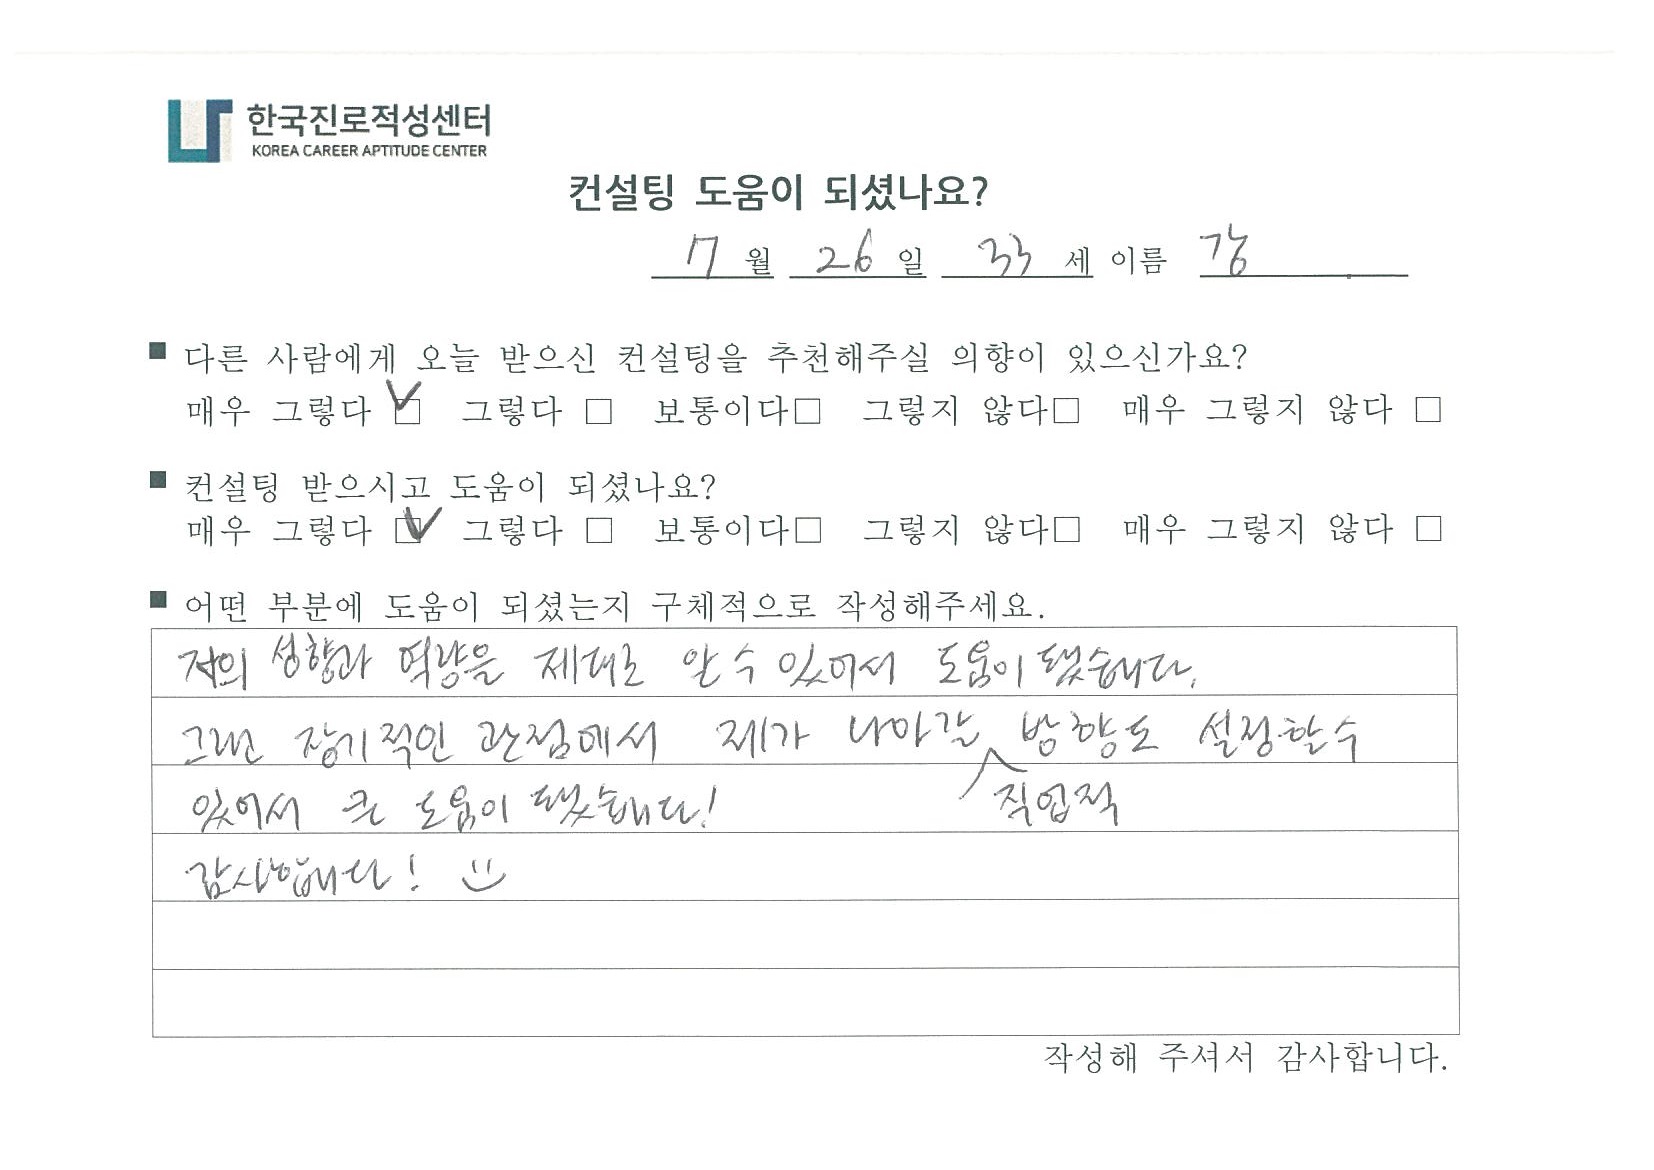 한국진로적성센터
KOREA CAREER APTITUDE CENTER
컨설팅 도움이 되셨나요?
7 월 26 일 33 세 이름 강
■ 다른 사람에게 오늘 받으신 컨설팅을 추천해주실 의향이 있으신가요?
매우 그렇다 ☑ 그렇다 □ 보통이다□ 그렇지 않다□ 매우 그렇지 않다 □
■ 컨설팅 받으시고 도움이 되셨나요?
매우 그렇다 ☑ 그렇다 □ 보통이다□ 그렇지 않다□ 매우 그렇지 않다 □
■ 어떤 부분에 도움이 되셨는지 구체적으로 작성해주세요.
저의 성향과 역량을 제대로 알 수 있어서 도움이 됐습니다.
그리고 장기적인 관점에서 제가 나아갈 방향도 설정할수
직업적
있어서 큰 도움이 됐습니다!
감사합니다! :)
작성해 주셔서 감사합니다.